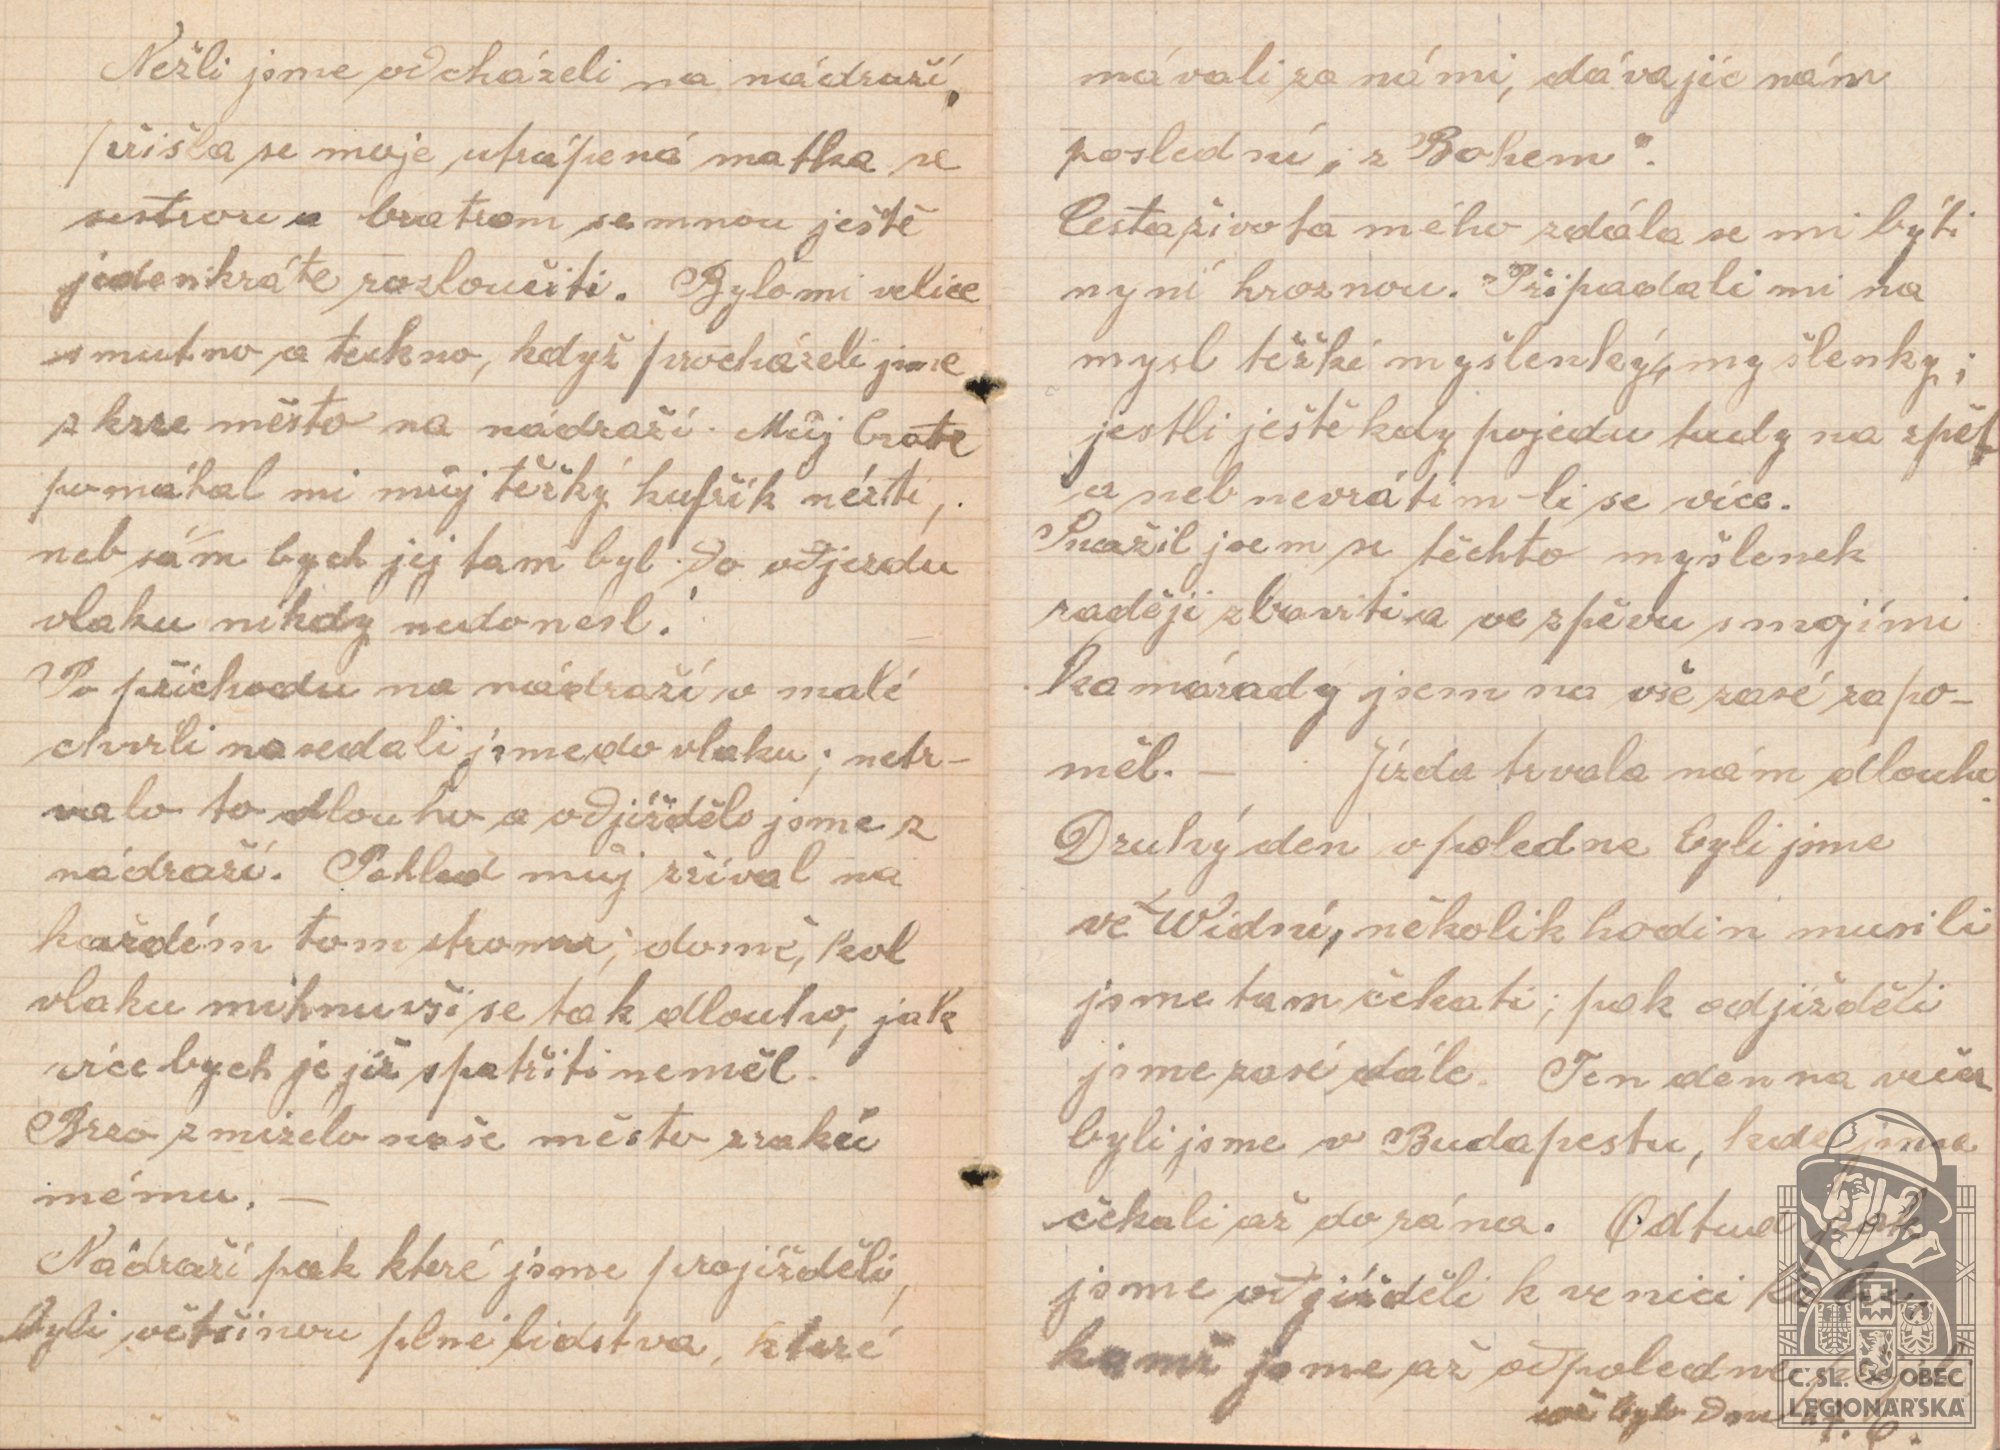 Nežli jsme odcházeli na nádraží,
přišla se moje utrápená matka se
sestrou a bratrem semnou ještě
jedenkráte rozloučiti. Bylo mi velice
smutno a teskno, když procházeli jsme
zkrze město na nádraží. Můj bratr
pomáhal mi můj těžký kufřík nésti,
neb sám bych jej tam byl do odjezdu
vlaku nikdy nedonesl.
Po příchodu na nádraží v malé
chvíli nasedali jsme do vlaku; netr-
valo to dlouho a odjížděli jsme z
nádraží. Pohled můj zříval na
každém tom stromu, domě, kol
vlaku mihnuvší se tak dlouho, jak
více bych je již spatřiti neměl.
Brzo zmizelo naše město zraku
mému. —
Nádraží pak které jsme projížděli,
byli většinou plné lidstva, které
mávali za námi, dávajíc nám
poslední „z Bohem".
Cesta života mého zdála se mi býti
nyní hroznou. Připadali mi na
mysl těžké myšlenky, myšlenky;
jestli ještě kdy pojedu tudy na zpět
a neb nevrátím-li se více.
Snažil jsem se těchto myšlenek
raději zbaviti a ve zpěvu s mojími
kamárady jsem na vše zasé zapo-
měl. — Jízda trvala nám dlouho.
Druhý den v poledne byli jsme
ve Wídni, několik hodin musili
jsme tam čekati; pak odjížděli
jsme zasé dále. Ten den na večer
byli jsme v Budapestu, kde jsme
čekali až do rána. Odtud pak
jsme odjížděli k venici
kamž jsme až odpoledne
což bylo dne 6.
Č. SL. OBEC
LEGIONÁŘSKÁ